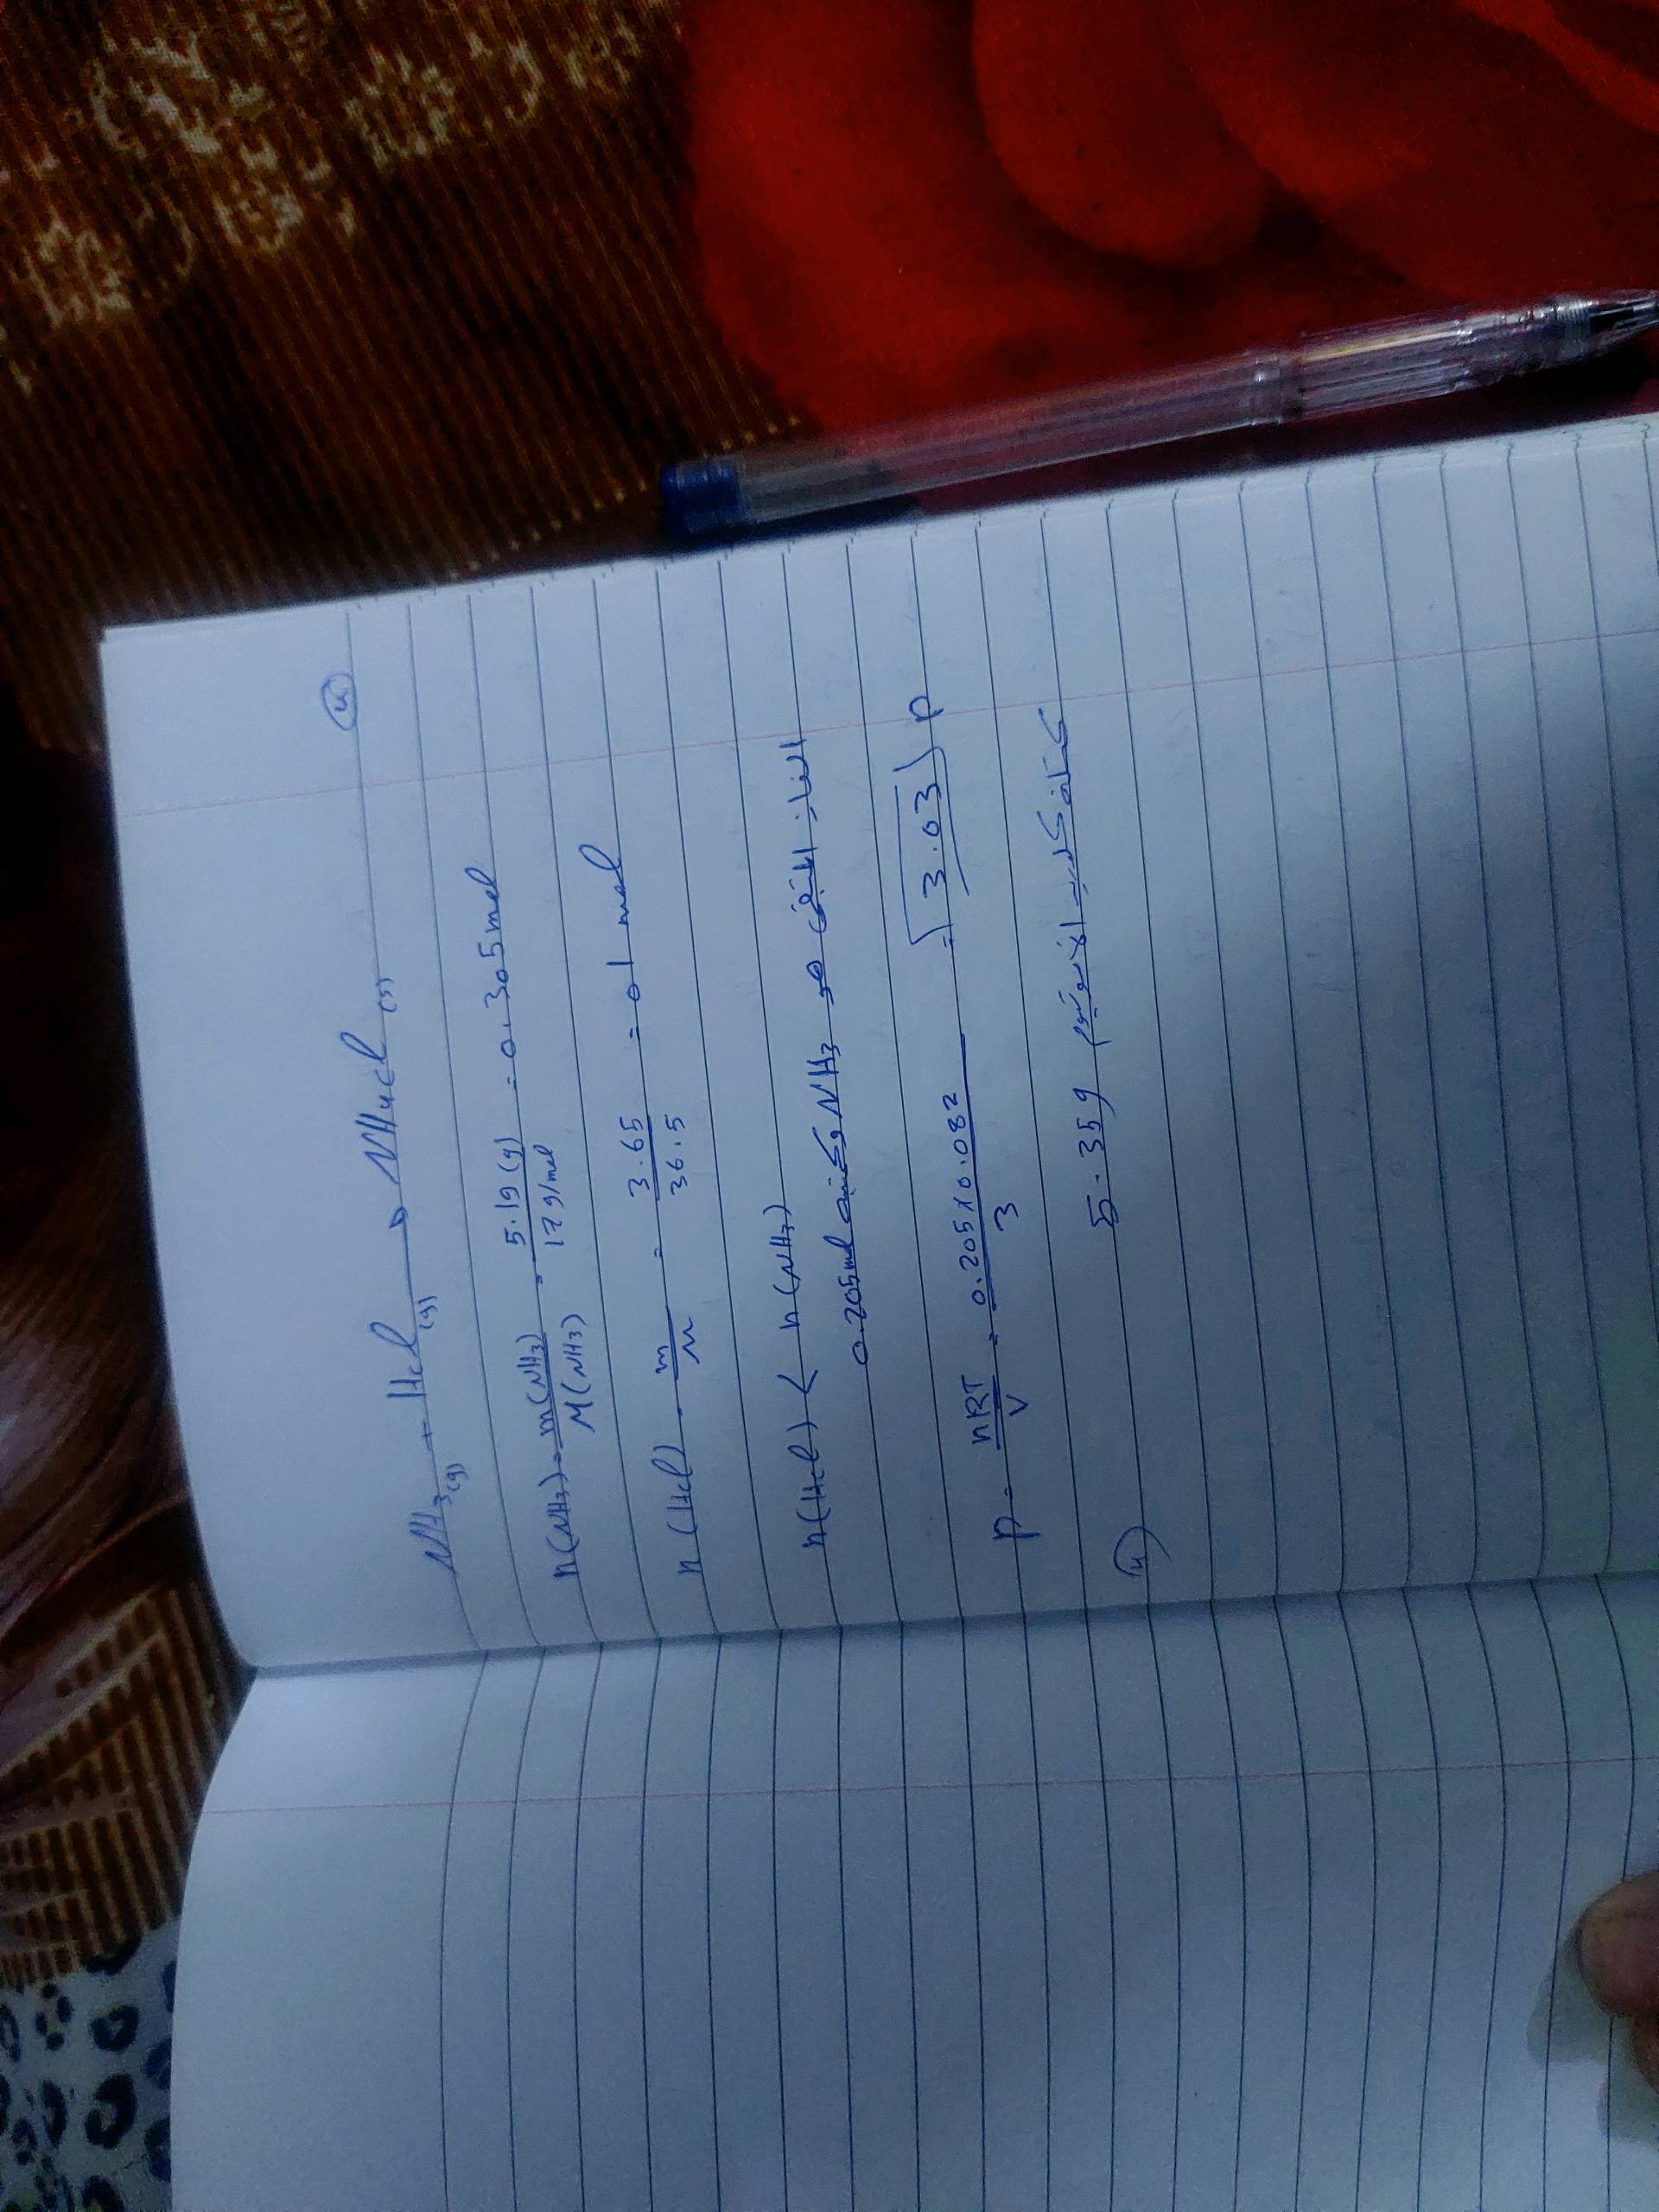 NH3(g) + Hcl(g) → NH4cl(s)
n(NH3) = m(NH3) / M(NH3) = 5.19 (g) / 17 g/mol = 0.305 mol
n (Hcl) = m / M = 3.65 / 36.5 = 0.1 mol
n(Hcl) < n(NH3)
الغاز المتبقي هو NH3 وكميته 0.205 mol
P = nRT / V = 0.205 x 0.082 / 3 = 3.03 P
كتلة كلوريد الأمونيوم 5.35 g